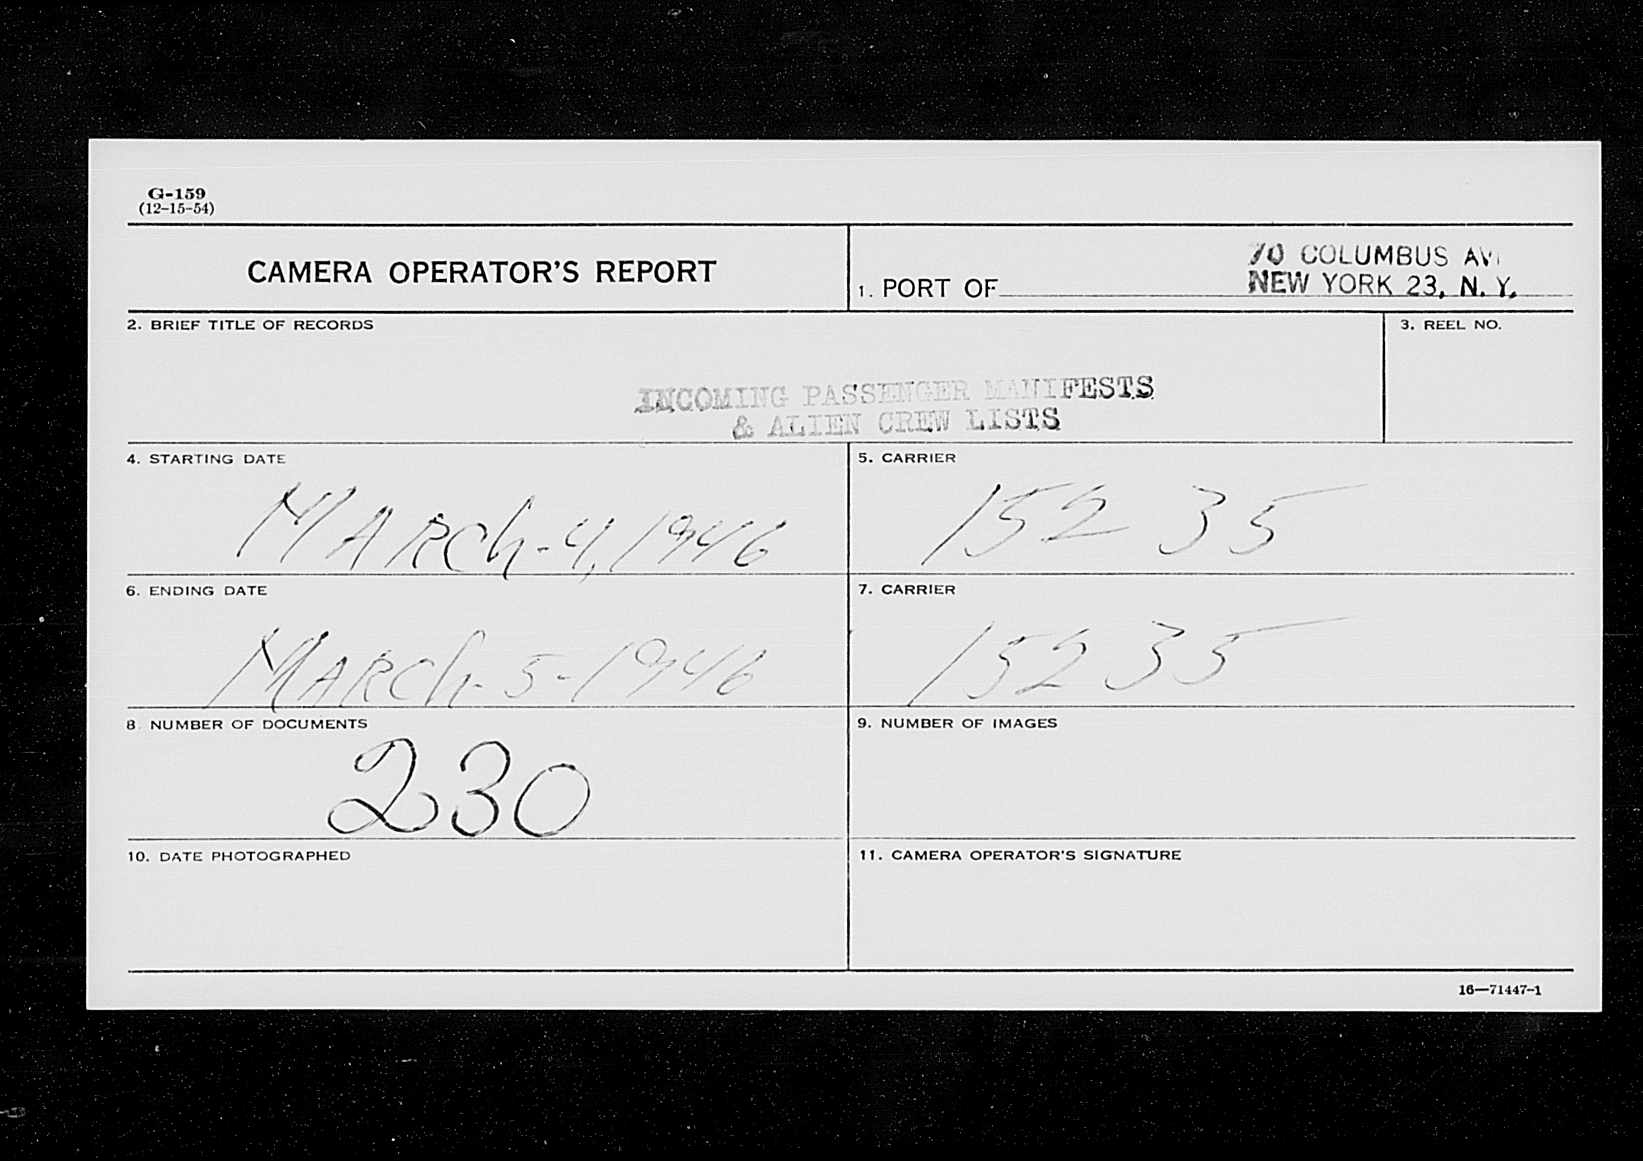 G-159
(12-15-54)
CAMERA OPERATOR'S REPORT
70 COLUMBUS AV
1. PORT OF NEW YORK 23, N. Y.
2. BRIEF TITLE OF RECORDS
3. REEL NO.
INCOMING PASSENGER MANIFESTS
& ALIEN CREW LISTS
4. STARTING DATE
5. CARRIER
MARCh-4, 1946
152 35
6. ENDING DATE
7. CARRIER
MARCh-5-1946
15235
8 NUMBER OF DOCUMENTS
9. NUMBER OF IMAGES
230
10. DATE PHOTOGRAPHED
11. CAMERA OPERATOR'S SIGNATURE
16—71447-1